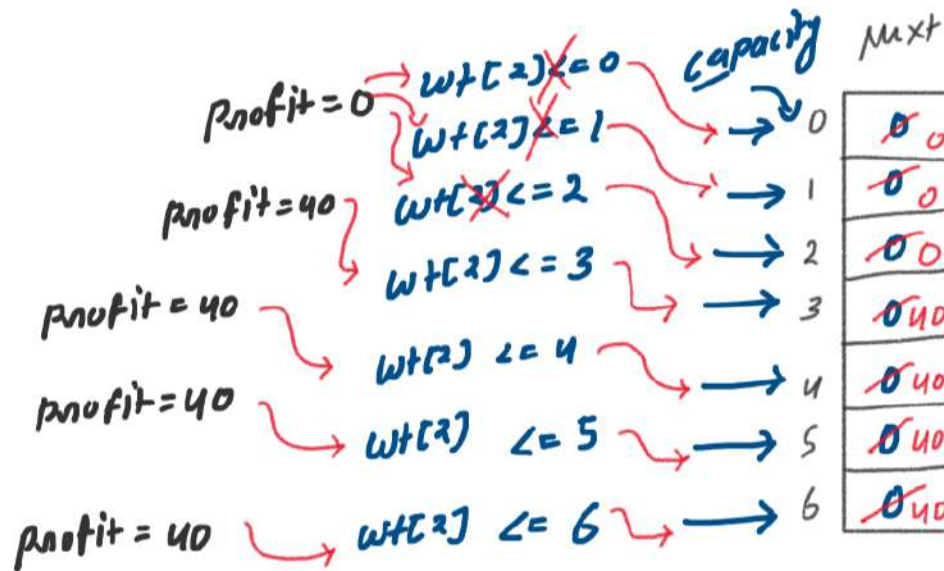 capacity next
profit = 0 wt[2] <= 0 0 0 0
wt[2] <= 1 1 0 0
profit = 40 wt[2] <= 2 2 0 0
wt[2] <= 3 3 0 40
profit = 40 wt[2] <= 4 4 0 40
profit = 40 wt[2] <= 5 5 0 40
profit = 40 wt[2] <= 6 6 0 40